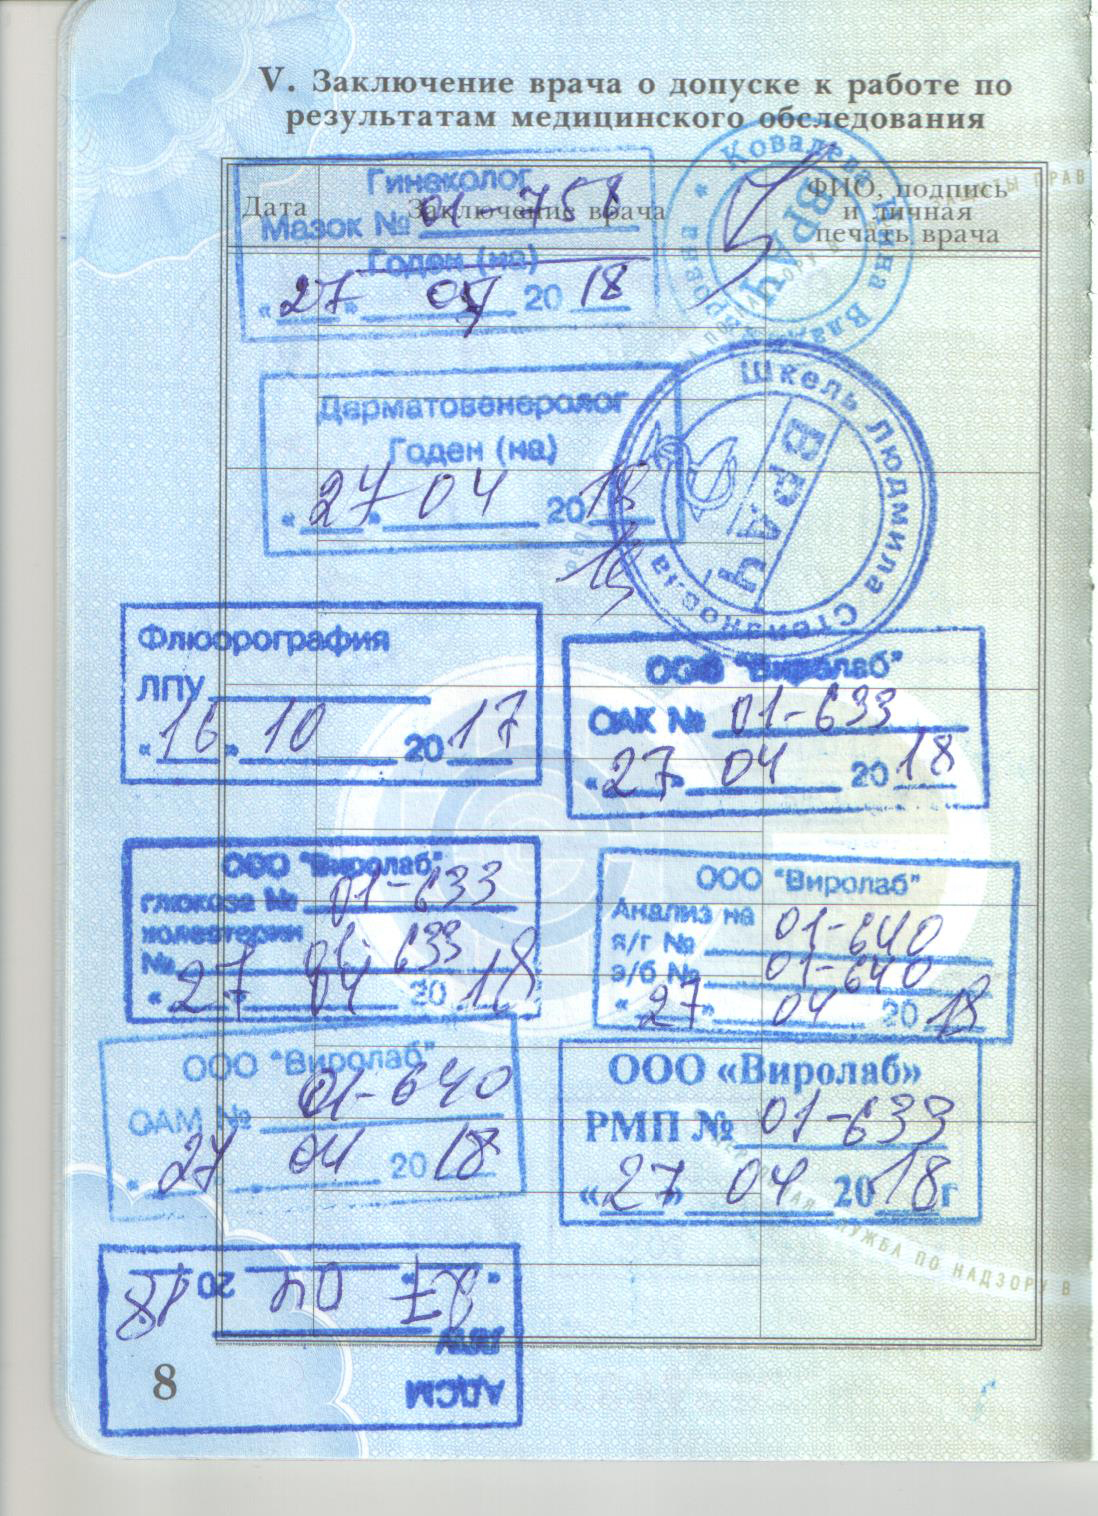 V. Заключение врача о допуске к работе по
результатам медицинского обследования
Дата
Заключение врача
ФИО, подпись
и личная
печать врача
Гинеколог
Мазок № 01-758
Годен (на)
«27» 04 2018
Ковалева Инна
ВРАЧ
Дерматовенеролог
Годен (на)
«27» 04 2018
Шкель Людмила Степановна
ВРАЧ
Флюорография
ЛПУ
«16» 10 2017
ООО "Виролаб"
ОАК № 01-633
«27» 04 2018
ООО "Виролаб"
глюкоза № 01-633
холестерин
№ 01-633
«27» 04 2018
ООО "Виролаб"
Анализ на
я/г № 01-640
э/б № 01-640
«27» 04 2018
ООО "Виролаб"
ОАМ № 01-640
«27» 04 2018
ООО «Виролаб»
РМП № 01-633
«27» 04 2018г
СЛУЖБА ПО НАДЗОРУ В
АДСМ
ЛПУ
04 2018
8